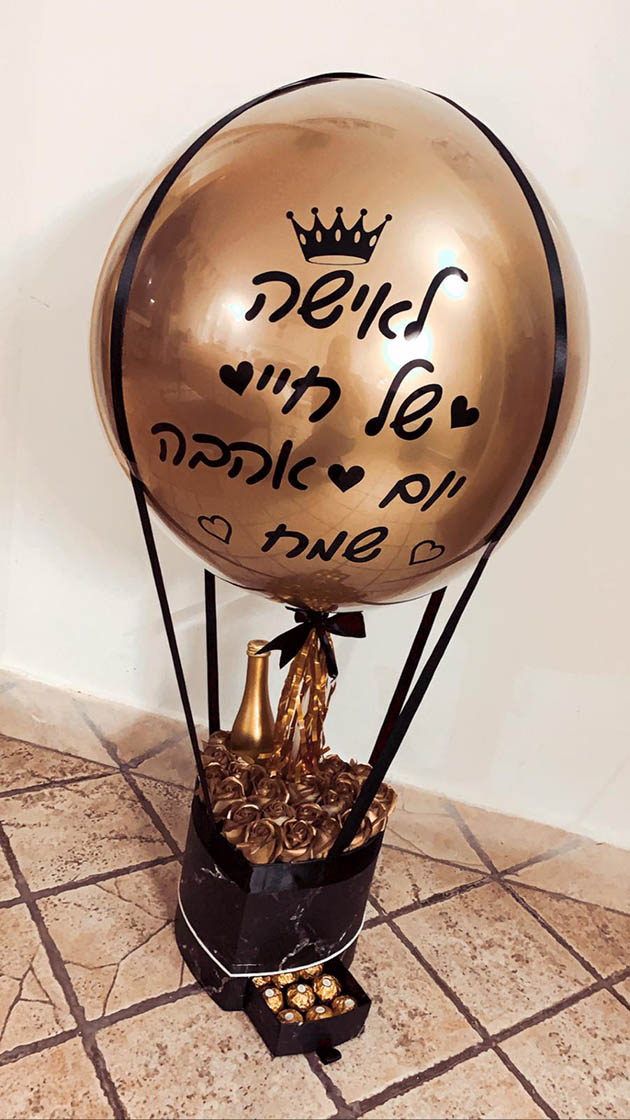 לאישה
של חיי
יום אהבה
שמח